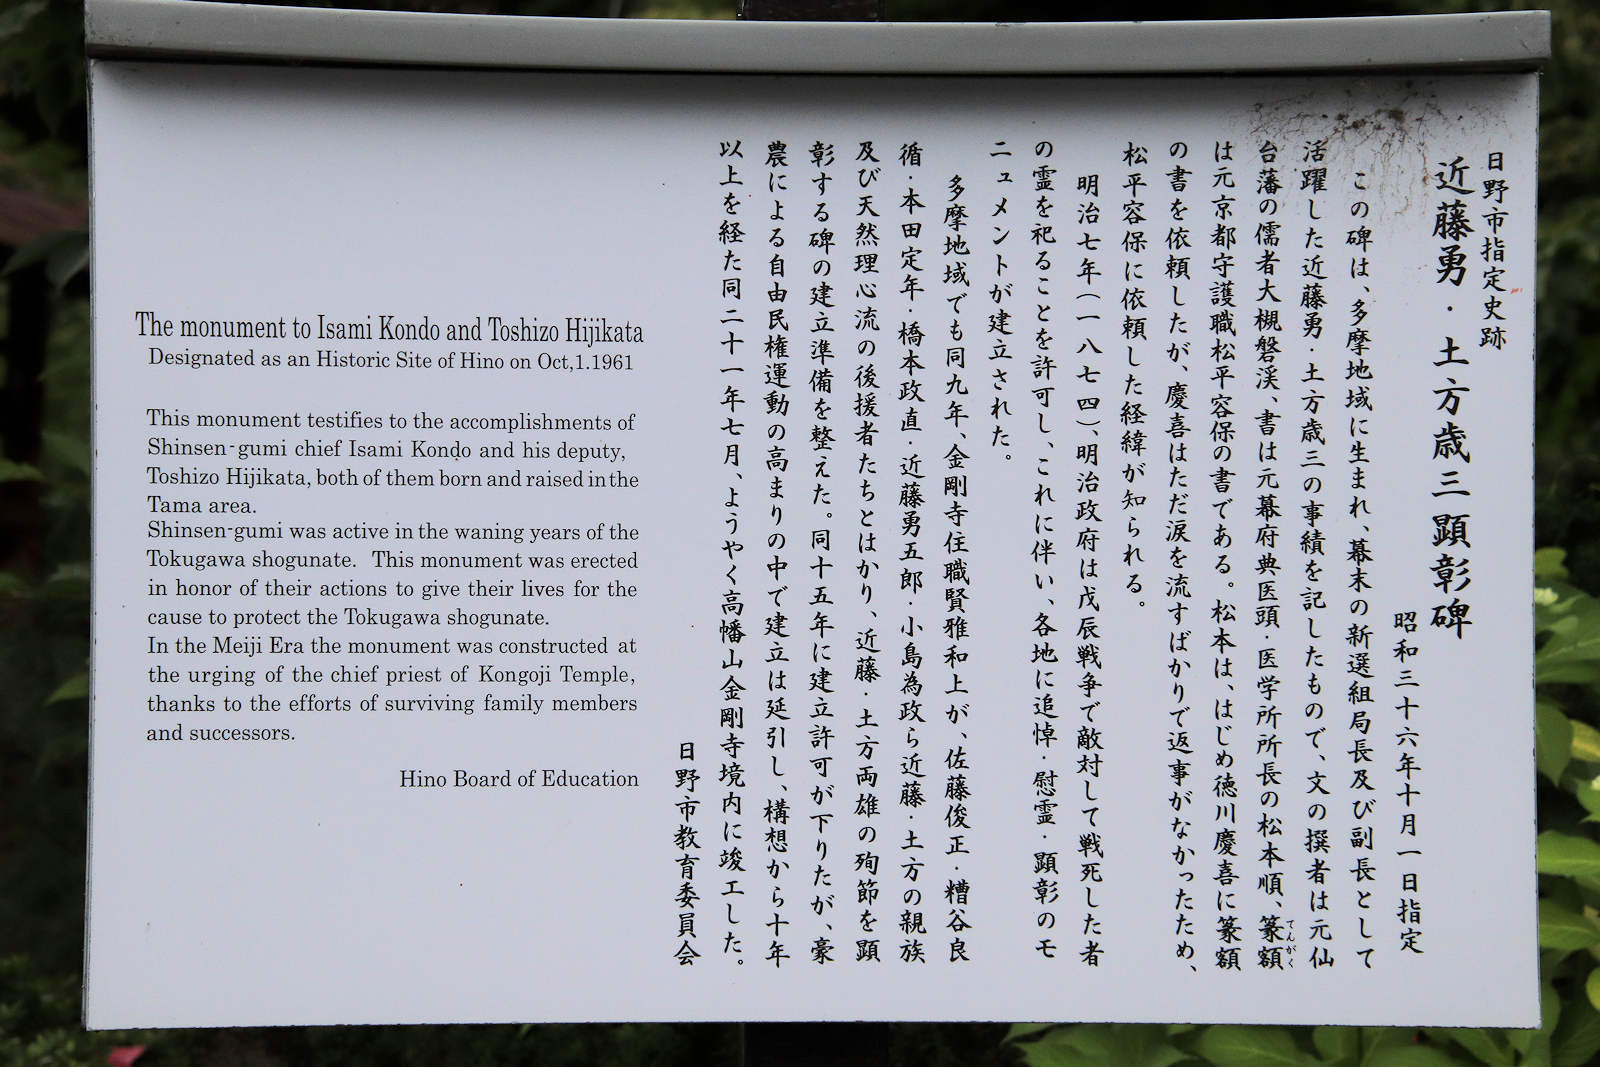 日野市指定史跡
近藤勇・土方歳三顕彰碑
昭和三十六年十月一日指定
この碑は、多摩地域に生まれ、幕末の新選組局長及び副長として
活躍した近藤勇・土方歳三の事績を記したもので、文の撰者は元仙
台藩の儒者大槻磐渓、書は元幕府典医頭・医学所所長の松本順、篆額
てんがく
は元京都守護職松平容保の書である。松本は、はじめ徳川慶喜に篆額
の書を依頼したが、慶喜はただ涙を流すばかりで返事がなかったため、
松平容保に依頼した経緯が知られる。
明治七年(一八七四)、明治政府は戊辰戦争で敵対して戦死した者
の霊を祀ることを許可し、これに伴い、各地に追悼・慰霊・顕彰のモ
ニュメントが建立された。
多摩地域でも同九年、金剛寺住職賢雅和上が、佐藤俊正・糟谷良
循・本田定年・橋本政直・近藤勇五郎・小島為政ら近藤・土方の親族
及び天然理心流の後援者たちとはかり、近藤・土方両雄の殉節を顕
彰する碑の建立準備を整えた。同十五年に建立許可が下りたが、豪
農による自由民権運動の高まりの中で建立は延引し、構想から十年
以上を経た同二十一年七月、ようやく高幡山金剛寺境内に竣工した。
日野市教育委員会
The monument to Isami Kondo and Toshizo Hijikata
Designated as an Historic Site of Hino on Oct,1.1961
This monument testifies to the accomplishments of
Shinsen-gumi chief Isami Kondo and his deputy,
Toshizo Hijikata, both of them born and raised in the
Tama area.
Shinsen-gumi was active in the waning years of the
Tokugawa shogunate. This monument was erected
in honor of their actions to give their lives for the
cause to protect the Tokugawa shogunate.
In the Meiji Era the monument was constructed at
the urging of the chief priest of Kongoji Temple,
thanks to the efforts of surviving family members
and successors.
Hino Board of Education